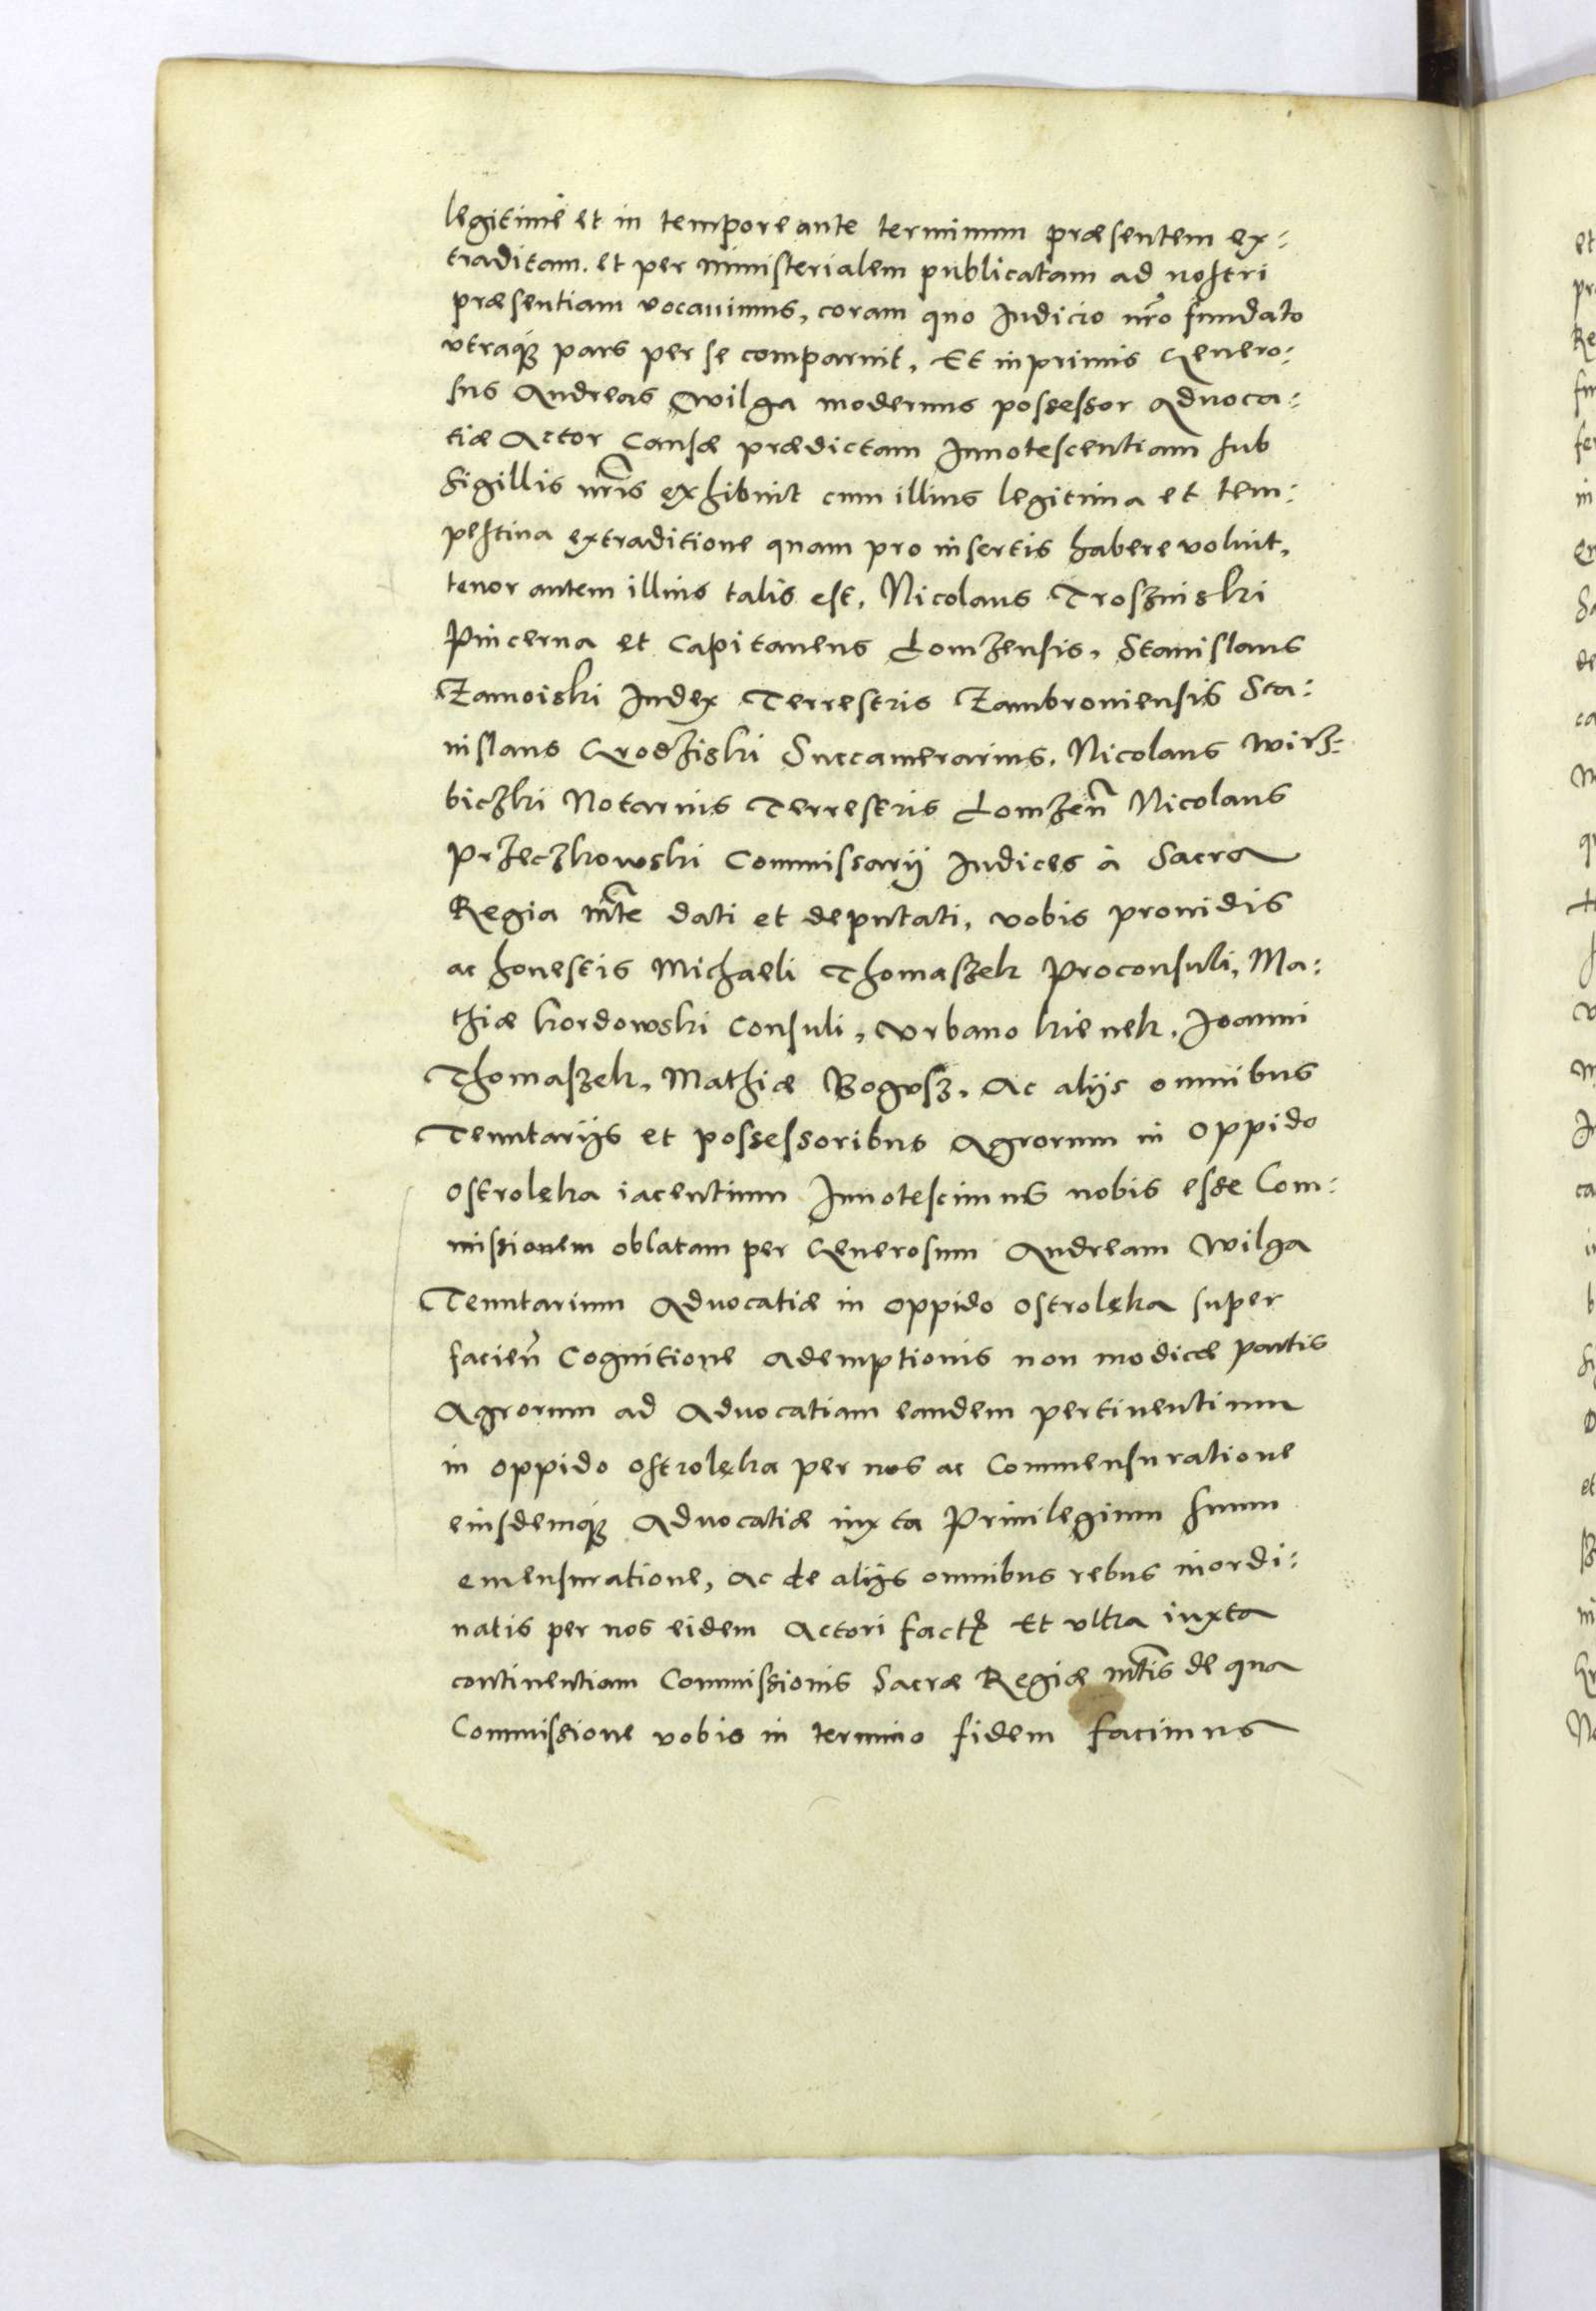 legitime et in tempore ante terminum præsentem ex:
traditam. et per ministerialem publicatam ad nostri
præsentiam vocauimus, coram quo Iudicio nr̃o fundato
vtraqȝ pars per se comparuit, Et inprimis Genero:
sus Andreas Wilga modernus possessor Aduoca:
tiæ Actor Causæ prædictam Innotescentiam sub
Sigillis nr̃is exhibuit cum illius legitima et tem:
pestiua extraditione quam pro insertis habere voluit,
tenor autem illius talis est, Nicolaus Troszniski
Pincerna et Capitaneus Łomzensis, Stanislaus
Zamoiski Iudex Terrestris Zambroniensis Sta:
nislaus Grodziski Succamerarius, Nicolaus Wirz:
biczki Notarius Terrestris Łomzen̄ Nicolaus
Przeczkowski Commissarij Iudices à Sacra
Regia Mt̃e dati et deputati, vobis prouidis
ac honestis Michaeli Thomaszek Proconsuli, Ma:
thiæ Kordowski Consuli, Vrbano Kienek, Joanni
Thomaszek, Mathiæ Bogusz, Ac alijs omnibus
Tenutarijs et possessoribus Agrorum in Oppido
Ostrolęka iacentium Innotescimus nobis esse Com:
missionem oblatam per Generosum Andream Wilga
Tenutarium Aduocatiæ in Oppido Ostrolęka super
facien̄ Cognitione Ademptionis non modicæ partis
Agrorum ad Aduocatiam eandem pertinentium
in Oppido Ostrolęka per nos ac Commensuratione
eiusdemqȝ Aduocatiæ iuxta Priuilegium suum
emensuratione, Ac de alijs omnibus rebus inordi:
natis per nos eidem Actori fact Et vltra iuxta
continentiam Commissionis Sacræ Regiæ Mt̃is de qua
Commissione vobis in termino fidem facimus